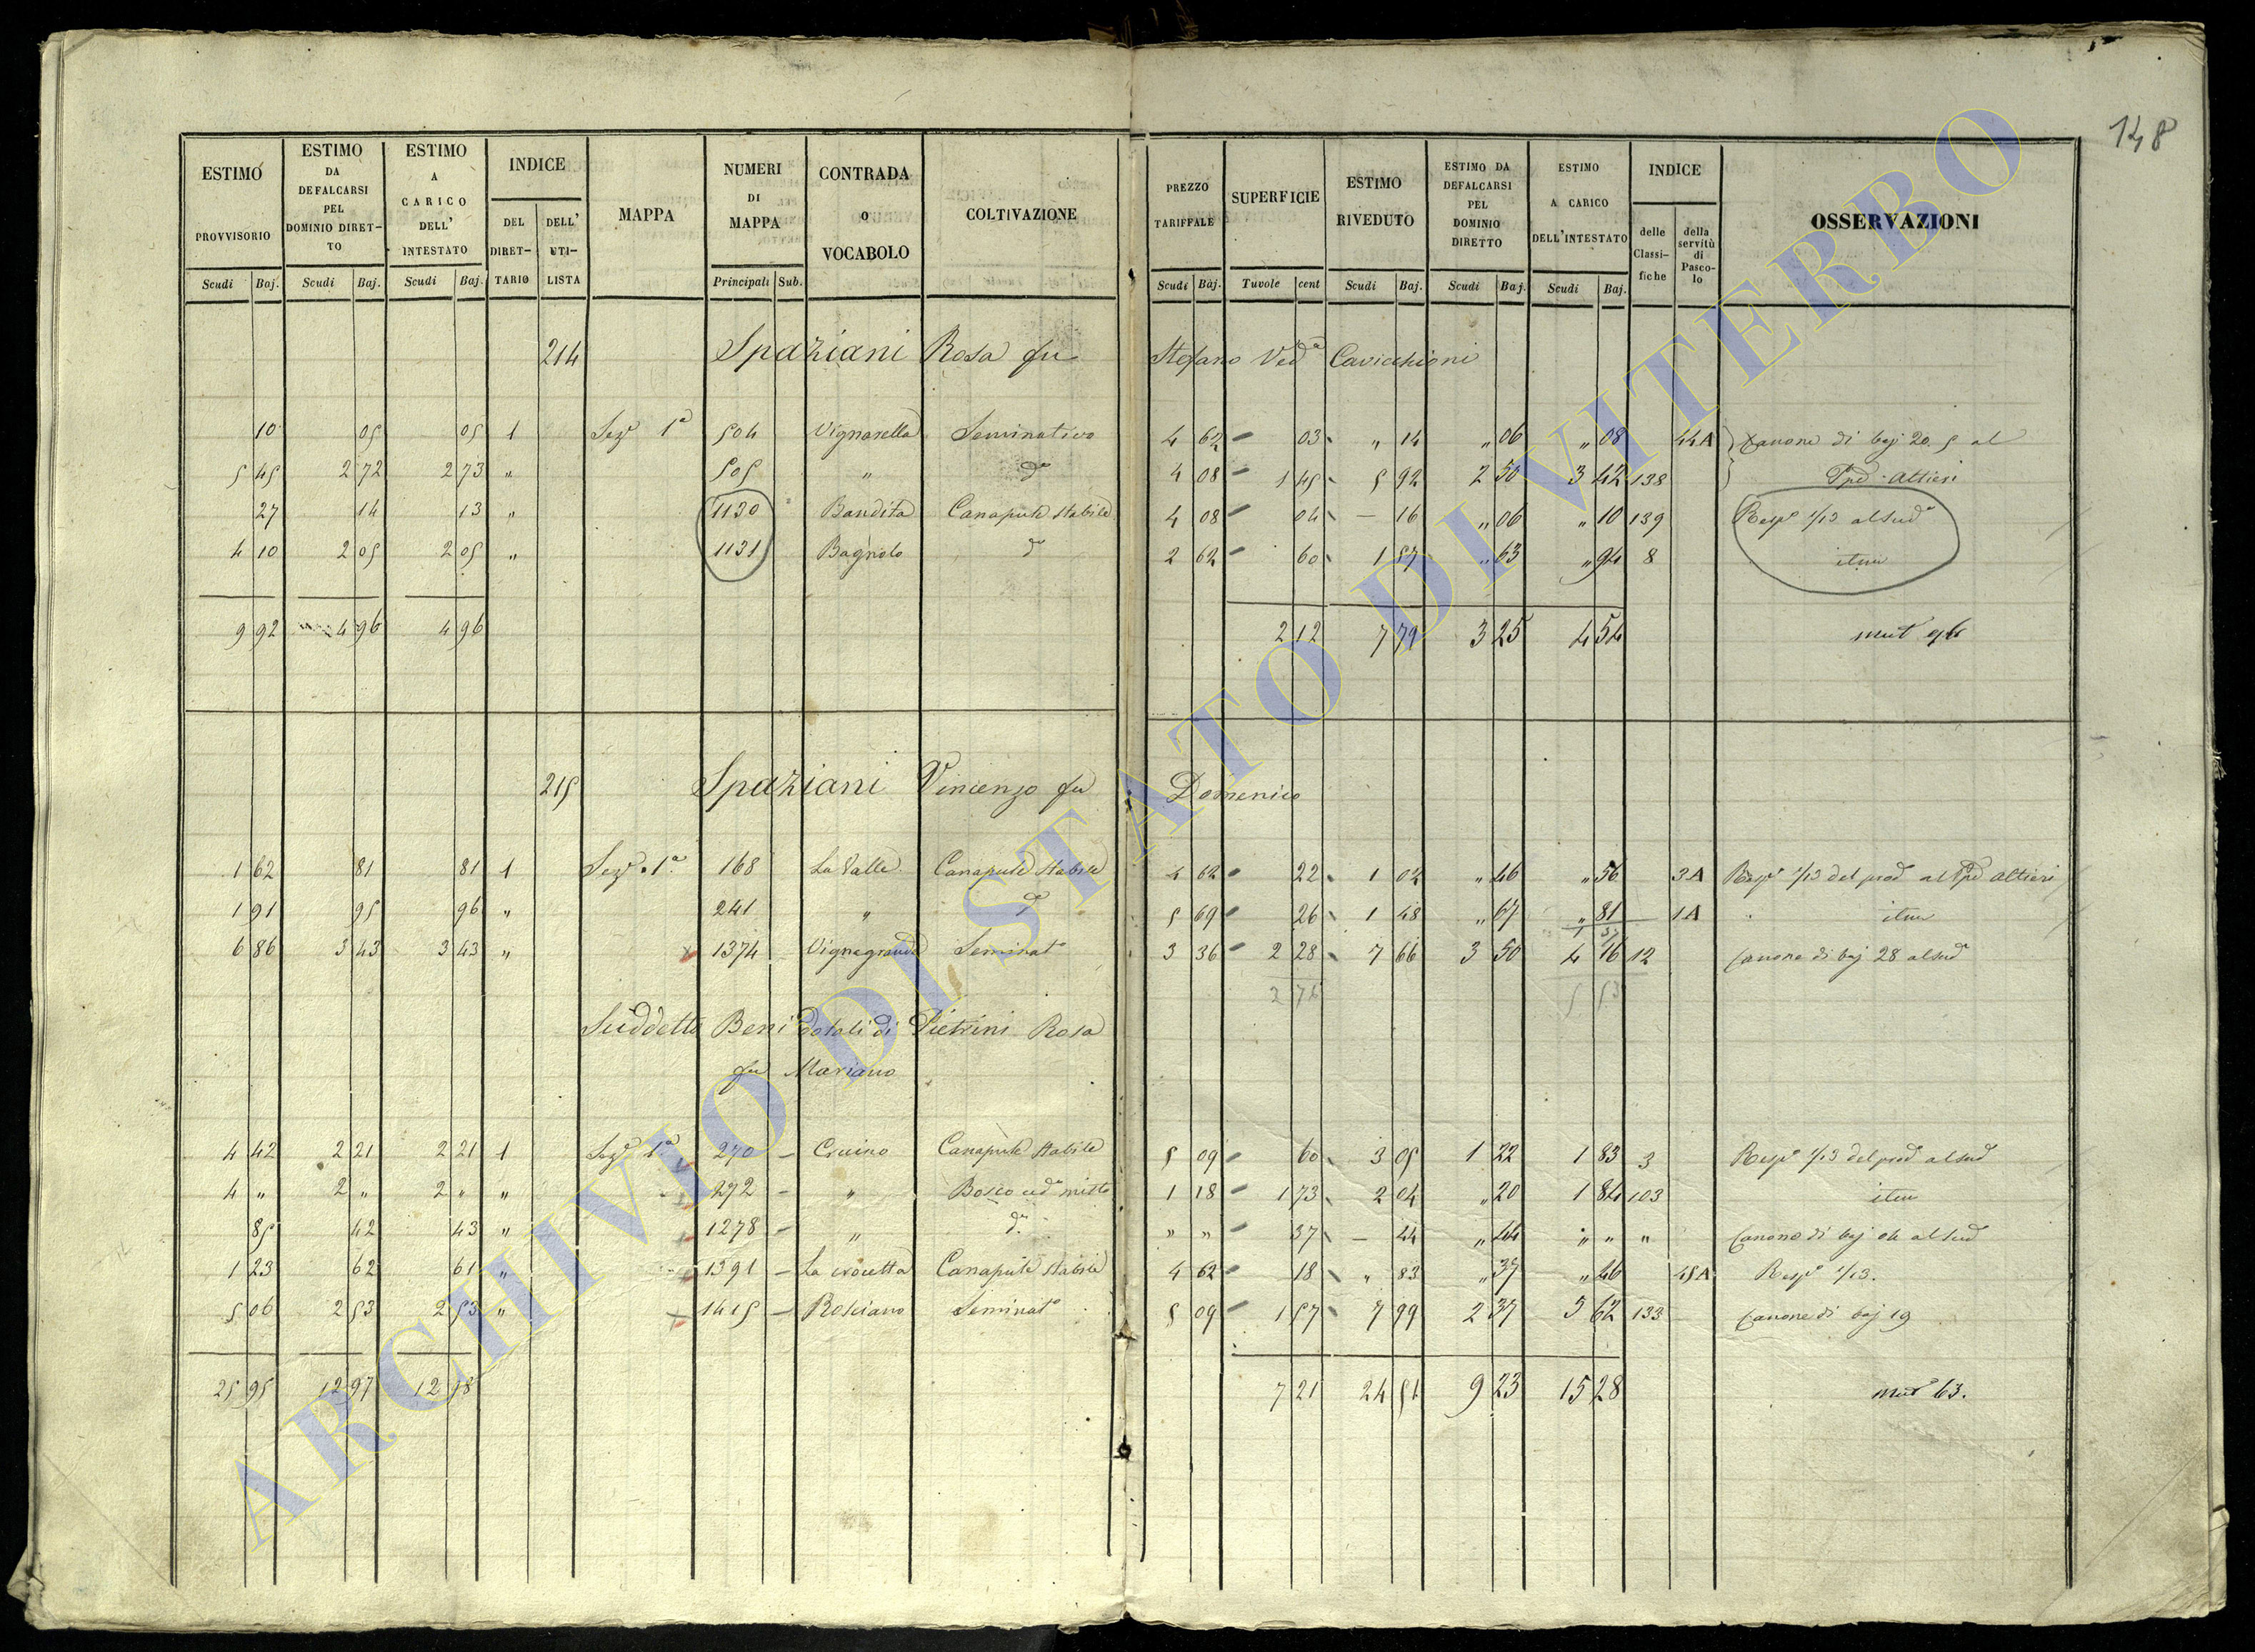 148
ESTIMO PROVVISORIO Scudi Baj. | ESTIMO DA DEFALCARSI PEL DOMINIO DIRETTO Scudi Baj. | ESTIMO A CARICO DELL' INTESTATO Scudi Baj. | INDICE DEL DIRETTARIO | DELL' UTILISTA | MAPPA | NUMERI DI MAPPA Principali Sub. | CONTRADA O VOCABOLO | COLTIVAZIONE | PREZZO TARIFFALE Scudi Baj. | SUPERFICIE Tavole cent | ESTIMO RIVEDUTO Scudi Baj. | ESTIMO DA DEFALCARSI PEL DOMINIO DIRETTO Scudi Baj. | ESTIMO A CARICO DELL'INTESTATO Scudi Baj. | INDICE delle Classifiche | della servitù di Pascolo | OSSERVAZIONI
214 Spaziani Rosa fu Stefano Ved.a Cavicchioni
10 | 05 | 05 | 1 | Sez.e 1a | 504 | Vignarella | Seminativo | 4 62 | 03 | " 14 | " 06 | " 08 | 44A | Canone di baj 20. 5 al
5 45 | 2 72 | 2 73 | " | 505 | " | do | 4 08 | 1 45 | 5 92 | 2 50 | 3 42 | 138 | Ppe Altieri
27 | 14 | 13 | " | 1130 | Bandita | Canapule stabile | 4 08 | 04 | — 16 | " 06 | " 10 | 139 | Resp.e 1/13 al Sud.o
4 10 | 2 05 | 2 05 | " | 1131 | Bagnolo | do | 2 62 | 60 | 1 57 | " 63 | " 94 | 8 | item
9 92 | 4 96 | 4 96 | 2 12 | 7 79 | 3 25 | 4 54 | mut 96
215 Spaziani Vincenzo fu Domenico
1 62 | 81 | 81 | 1 | Sez.e 1a | 168 | La Valle | Canapule stabile | 4 62 | 22 | 1 02 | " 46 | " 56 | 3A | Resp.e 1/13 del prod al Ppe Altieri
1 91 | 95 | 96 | " | 241 | " | do | 5 69 | 26 | 1 48 | " 67 | " 81 | 1A | item
1 37
6 86 | 3 43 | 3 43 | " | 1374 | Vignagrande | Seminat.o | 3 36 | 2 28 | 7 66 | 3 50 | 4 16 | 12 | Canone di baj 28 al sud
2 76 | 5 53
Suddetto Beni dotali di Pietrini Rosa
fu Mariano
4 42 | 2 21 | 2 21 | 1 | Sez.e 1a | 270 | Cruino | Canapule stabile | 5 09 | 60 | 3 05 | 1 22 | 1 83 | 3 | Resp.e 1/13 del prod al sud
4 " | 2 " | 2 " | " | 272 | " | Bosco ced.o misto | 1 18 | 1 73 | 2 04 | " 20 | 1 84 | 103 | item
85 | 42 | 43 | " | 1278 | " | do | " " | 37 | — 44 | " 44 | " " | " | Canone di baj 04 al sud
1 23 | 62 | 61 | " | 1391 | La crocetta | Canapule stabile | 4 62 | 18 | " 83 | " 37 | " 46 | 45A | Resp.e 1/13.
5 06 | 2 53 | 2 53 | " | 1415 | Rosciano | Seminat.o | 5 09 | 1 57 | 7 99 | 2 37 | 5 62 | 133 | Canone di baj 19
25 95 | 12 97 | 12 98 | 7 21 | 24 51 | 9 23 | 15 28 | mut 63.
ARCHIVIO DI STATO DI VITERBO